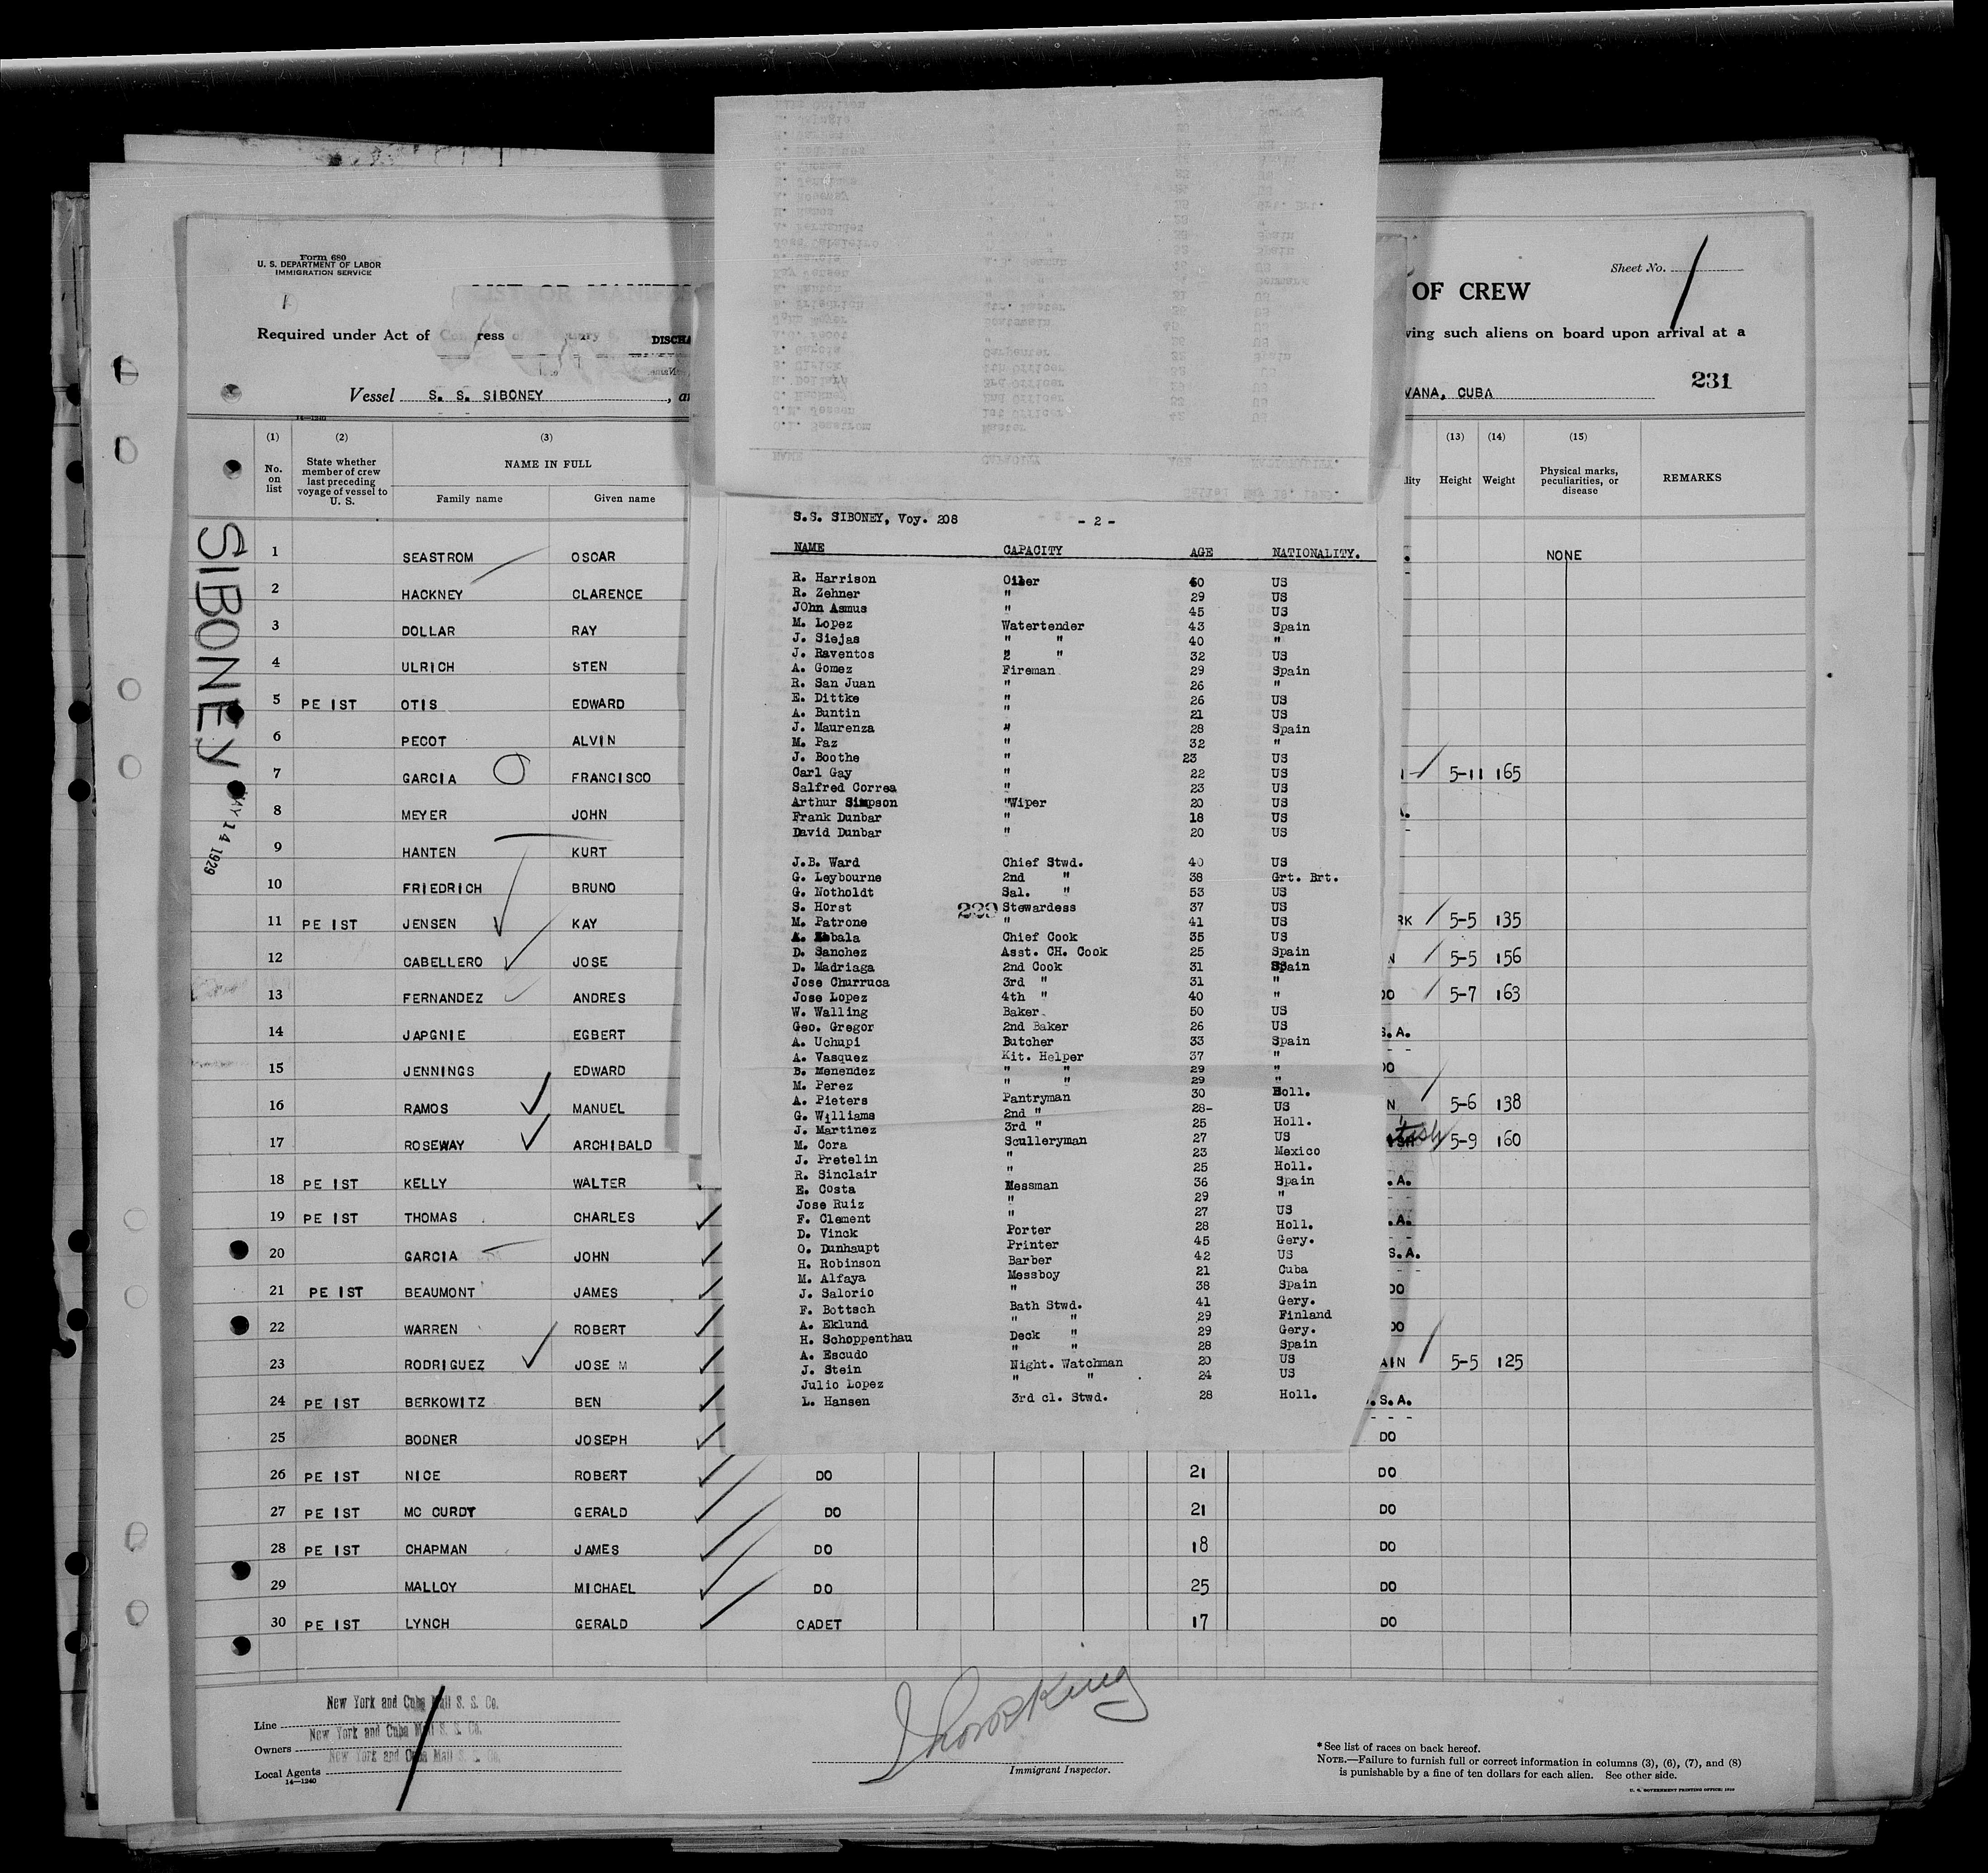 Form 680
U. S. DEPARTMENT OF LABOR
IMMIGRATION SERVICE
LIST OR MANIFES
OF CREW
Sheet No. 1
Required under Act of Congress of
DISCHA
ving such aliens on board upon arrival at a
Vessel S. S. SIBONEY, a
VANA, CUBA
231
(1) (2) (3) (13) (14) (15)
No. on list
State whether member of crew last preceding voyage of vessel to U. S.
NAME IN FULL
Family name Given name
lity Height Weight
Physical marks, peculiarities, or disease
REMARKS
SIBONEY
MAY 14 1929
1 SEASTROM OSCAR NONE
2 HACKNEY CLARENCE
3 DOLLAR RAY
4 ULRICH STEN
5 PE IST OTIS EDWARD
6 PECOT ALVIN
7 GARCIA FRANCISCO 5-11 165
8 MEYER JOHN
9 HANTEN KURT
10 FRIEDRICH BRUNO
11 PE IST JENSEN KAY RK 5-5 135
12 CABELLERO JOSE N 5-5 156
13 FERNANDEZ ANDRES DO 5-7 163
14 JAPGNIE EGBERT S.A.
15 JENNINGS EDWARD DO
16 RAMOS MANUEL N 5-6 138
17 ROSEWAY ARCHIBALD 5-9 160
18 PE IST KELLY WALTER .A.
19 PE IST THOMAS CHARLES .A.
20 GARCIA JOHN S.A.
21 PE IST BEAUMONT JAMES DO
22 WARREN ROBERT DO
23 RODRIGUEZ JOSE M AIN 5-5 125
24 PE IST BERKOWITZ BEN .S.A.
25 BODNER JOSEPH DO
26 PE IST NICE ROBERT DO 21 DO
27 PE IST MC CURDY GERALD DO 21 DO
28 PE IST CHAPMAN JAMES DO 18 DO
29 MALLOY MICHAEL DO 25 DO
30 PE IST LYNCH GERALD CADET 17 DO
S.S. SIBONEY, Voy. 208 - 2 -
NAME CAPACITY AGE NATIONALITY.
R. Harrison Oiler 40 US
R. Zehner " 29 US
JOhn Asmus " 45 US
M. Lopez Watertender 43 Spain
J. Siejas " " 40 "
J. Raventos " " 32 US
A. Gomez Fireman 29 Spain
R. San Juan " 26 "
E. Dittke " 26 US
A. Buntin " 21 US
J. Maurenza " 28 Spain
M. Paz " 32 "
J. Boothe " 23 US
Carl Gay " 22 US
Salfred Correa " 23 US
Arthur Simpson "Wiper 20 US
Frank Dunbar " 18 US
David Dunbar " 20 US
J.B. Ward Chief Stwd. 40 US
G. Leybourne 2nd " 38 Grt. Brt.
G. Notholdt Sal. " 53 US
S. Horst 229 Stewardess 37 US
M. Patrone " 41 US
Chief Cook 35 US
D. Sanchez Asst. CH. Cook 25 Spain
D. Madriaga 2nd Cook 31 Spain
Jose Churruca 3rd " 31 "
Jose Lopez 4th " 40 "
W. Walling Baker 50 US
Geo. Gregor 2nd Baker 26 US
A. Uchupi Butcher 33 Spain
A. Vasquez Kit. Helper 37 "
B. Menendez " " 29 "
M. Perez " " 29 "
A. Pieters Pantryman 30 Holl.
G. Williams 2nd " 28- US
J. Martinez 3rd " 25 Holl.
M. Cora Sculleryman 27 US
J. Pretelin " 23 Mexico
R. Sinclair " 25 Holl.
E. Costa Messman 36 Spain
Jose Ruiz " 29 "
F. Clement " 27 US
D. Vinck Porter 28 Holl.
O. Dunhaupt Printer 45 Gery.
H. Robinson Barber 42 US
M. Alfaya Messboy 21 Cuba
J. Salorio " 38 Spain
F. Bottsch Bath Stwd. 41 Gery.
A. Eklund " " 29 Finland
H. Schoppenthau Deck " 29 Gery.
A. Escudo " " 28 Spain
J. Stein Night. Watchman 20 US
Julio Lopez " " 24 US
L. Hansen 3rd cl. Stwd. 28 Holl.
Line New York and Cuba Mail S. S. Co.
Owners New York and Cuba Mail S. S. Co.
Local Agents New York and Cuba Mail S. S. Co.
14—1240
Immigrant Inspector.
* See list of races on back hereof.
NOTE.—Failure to furnish full or correct information in columns (3), (6), (7), and (8)
is punishable by a fine of ten dollars for each alien. See other side.